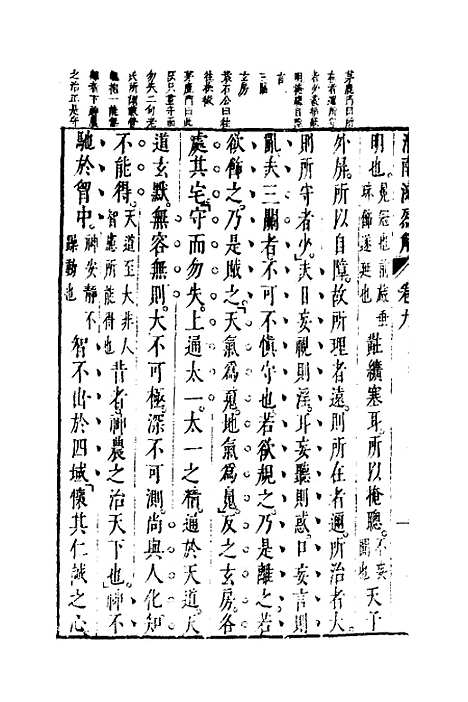 淮南鴻烈解 卷九 一
茅鹿門曰所
在者邇所守
言
三關
玄房
袁石公曰往
茅鹿門曰此
段只重守而
勿失二句老
氏所謂載營
魄抱一能無
離者下神農
之治正是守
明也。冕冠也前旒垂珠飾遂延也黈纊塞耳。所以掩聰。不妄聞也天子
外屏。所以自障。故所理者遠。則所在者邇。所治者大。
則所守者少。夫目妄視則淫。耳妄聽則惑。口妄言則
亂。夫三關者不可不慎守也。若欲規之。乃是離之。若
欲飾之。乃是賊之。天氣為魂。地氣為魄。反之玄房。各
處其宅。守而勿失。上通太一。太一之精。通於天道。天
道玄默。無容無則。大不可極。深不可測。尚與人化知
不能得。天道至大非人智慮所能得也昔者神農之治天下也。神不
馳於胷中。神安靜不躁動也智不出於四域。懷其仁誠之心